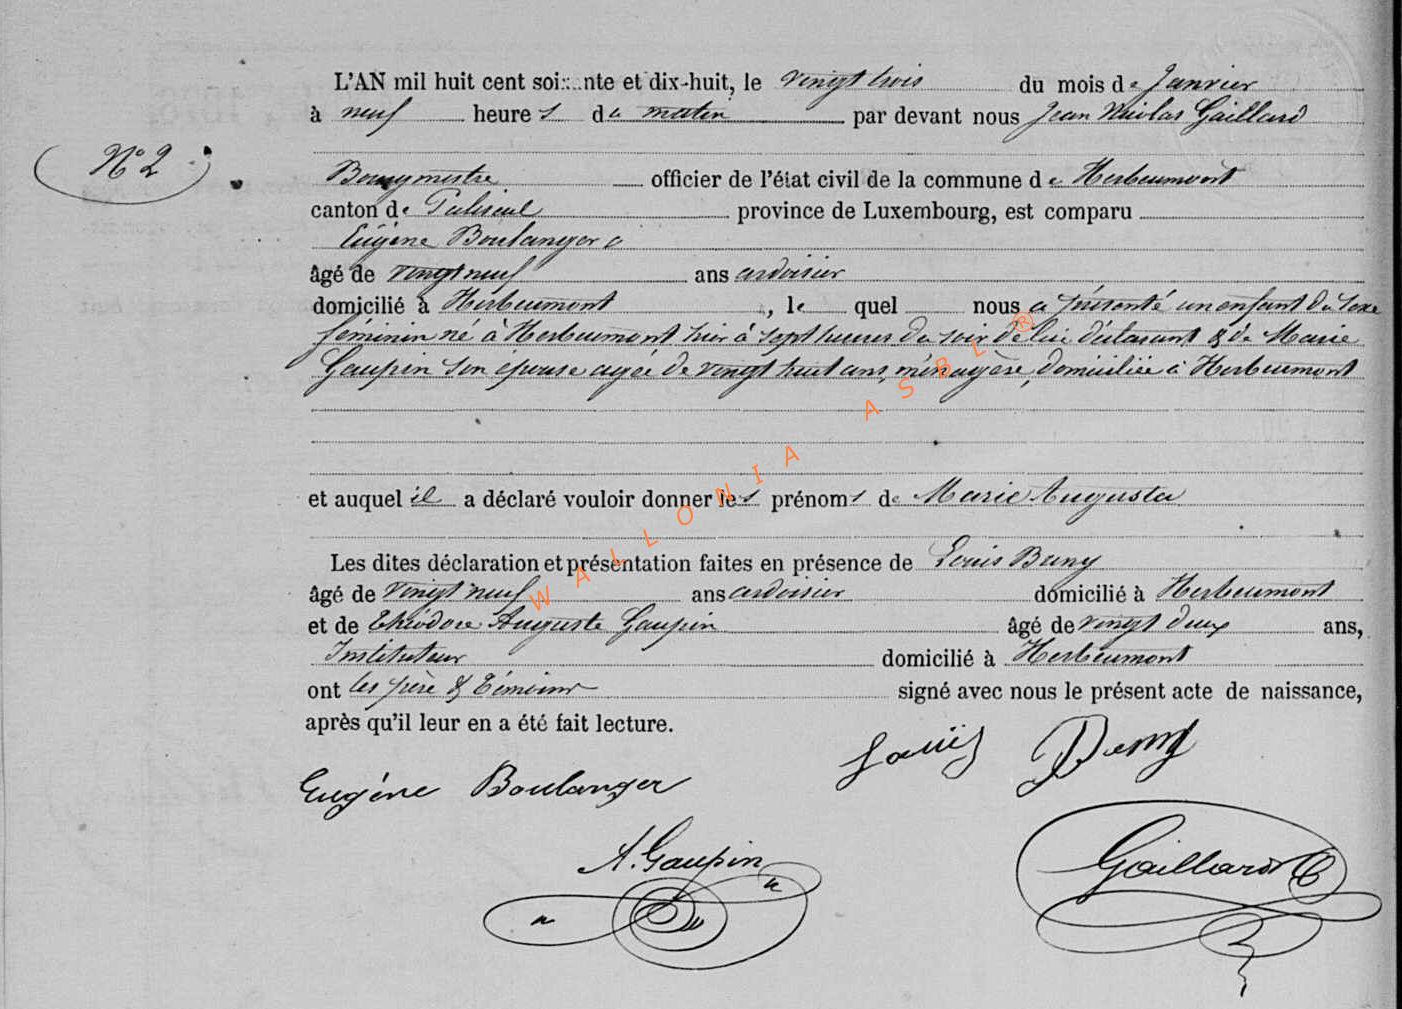 L'AN mil huit cent soixante et dix-huit, le vingt trois du mois de Janvier
à neuf heures du matin par devant nous Jean Nicolas Gaillard
N° 2
Bourgmestre officier de l'état civil de la commune de Herbeumont
canton de Paliseul province de Luxembourg, est comparu
Eugène Boulanger
âgé de vingt neuf ans ardoisier
domicilié à Herbeumont, lequel nous a présenté un enfant du sexe
féminin né à Herbeumont hier à sept heures du soir de lui déclarant & de Marie
Gaupin son épouse agée de vingt huit ans, ménagère, domiciliée à Herbeumont
et auquel il a déclaré vouloir donner les prénoms de Marie Augusta
Les dites déclaration et présentation faites en présence de Louis
âgé de vingt neuf ans ardoisier domicilié à Herbeumont
et de Théodore Auguste Gaupin âgé de vingt deux ans,
Instituteur domicilié à Herbeumont
ont les père & témoins signé avec nous le présent acte de naissance,
après qu'il leur en a été fait lecture.
Eugéne Boulanger Louis
A. Gaupin Gaillard
WALLONIA ASBL ®